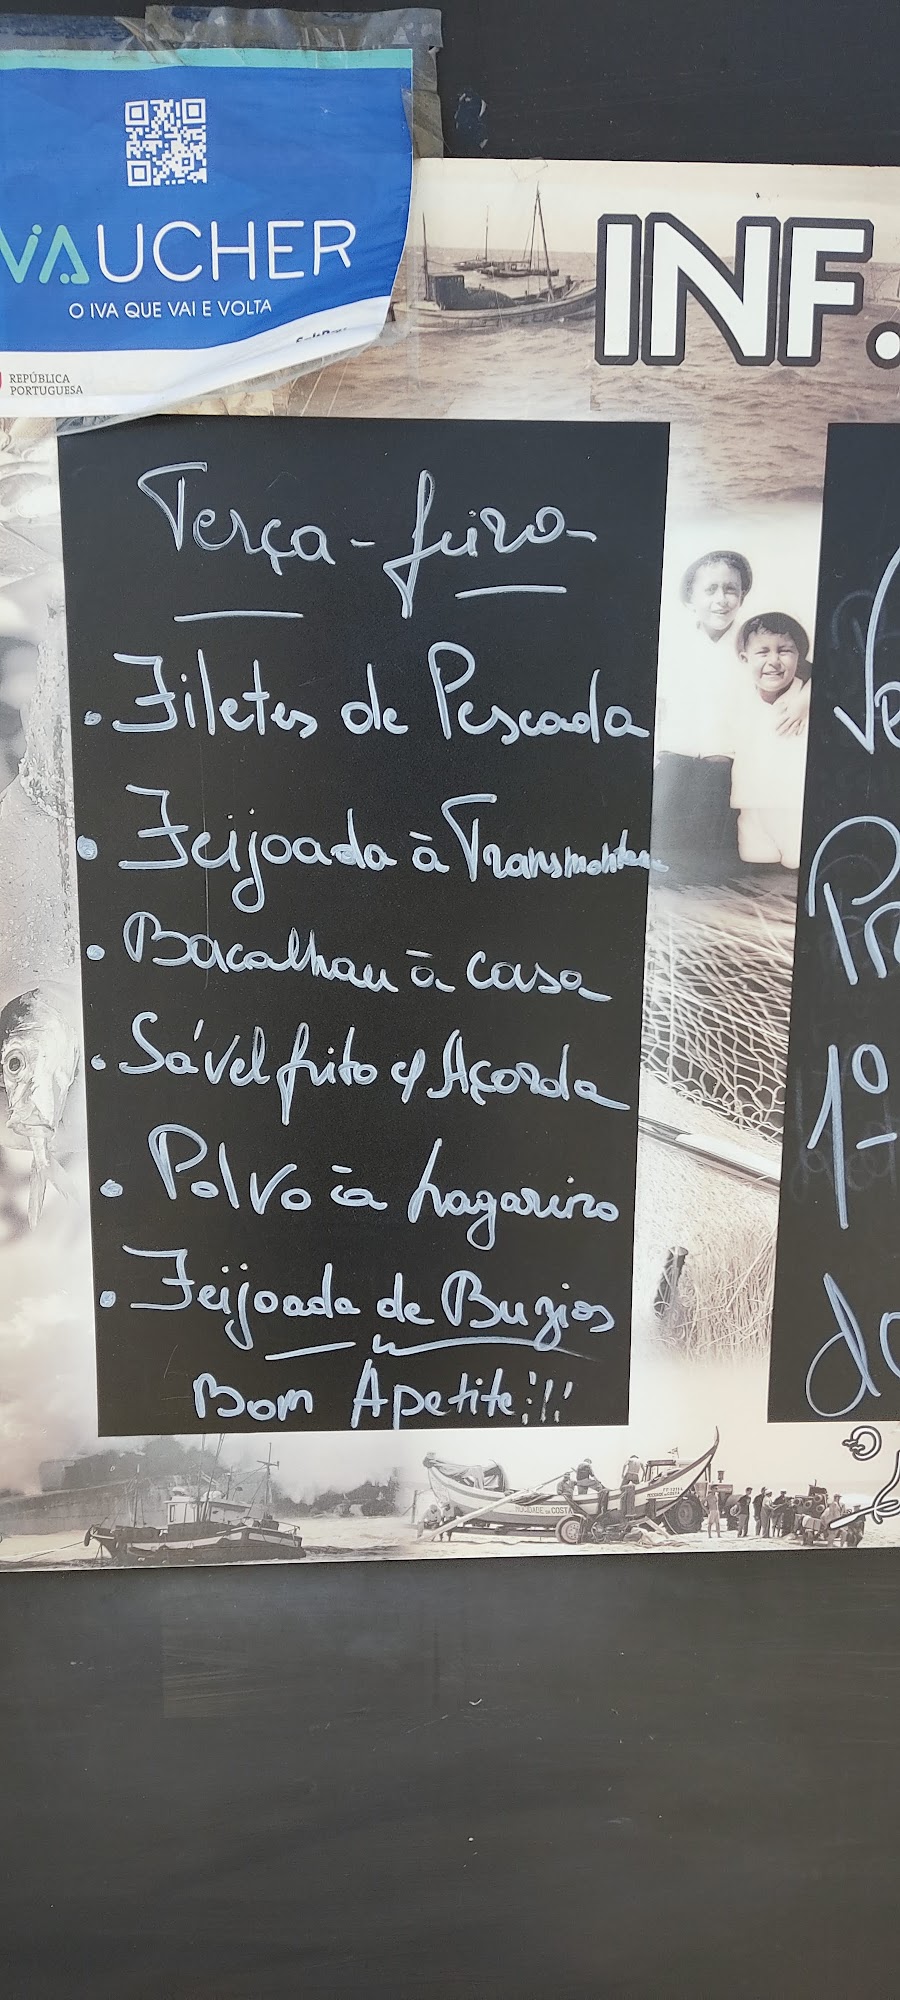 iVAUCHER
O IVA QUE VAI E VOLTA
REPÚBLICA
PORTUGUESA
INF.
Terça-feira
. Filetes de Pescada
. Feijoada à Transmontana
. Bacalhau à casa
. Sável frito c/ Açorda
. Polvo à Lagareiro
. Feijoada de Buzios
Bom Apetite!!!
1º
MOCIDADE DA COSTA